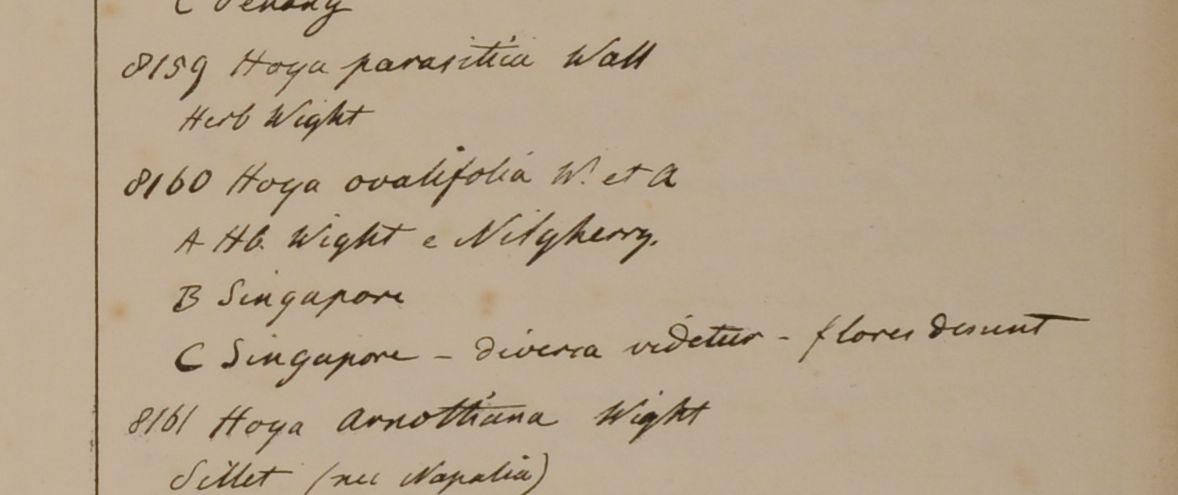 C Penang
8159 Hoya parasitica Wall
Herb Wight
8160 Hoya ovalifolia W. et A
A Hb. Wight e Nilgherry.
B Singapore
C Singapore - diversa videtur - flores desunt
8161 Hoya Arnottiana Wight
Sillet (nec Napalia)